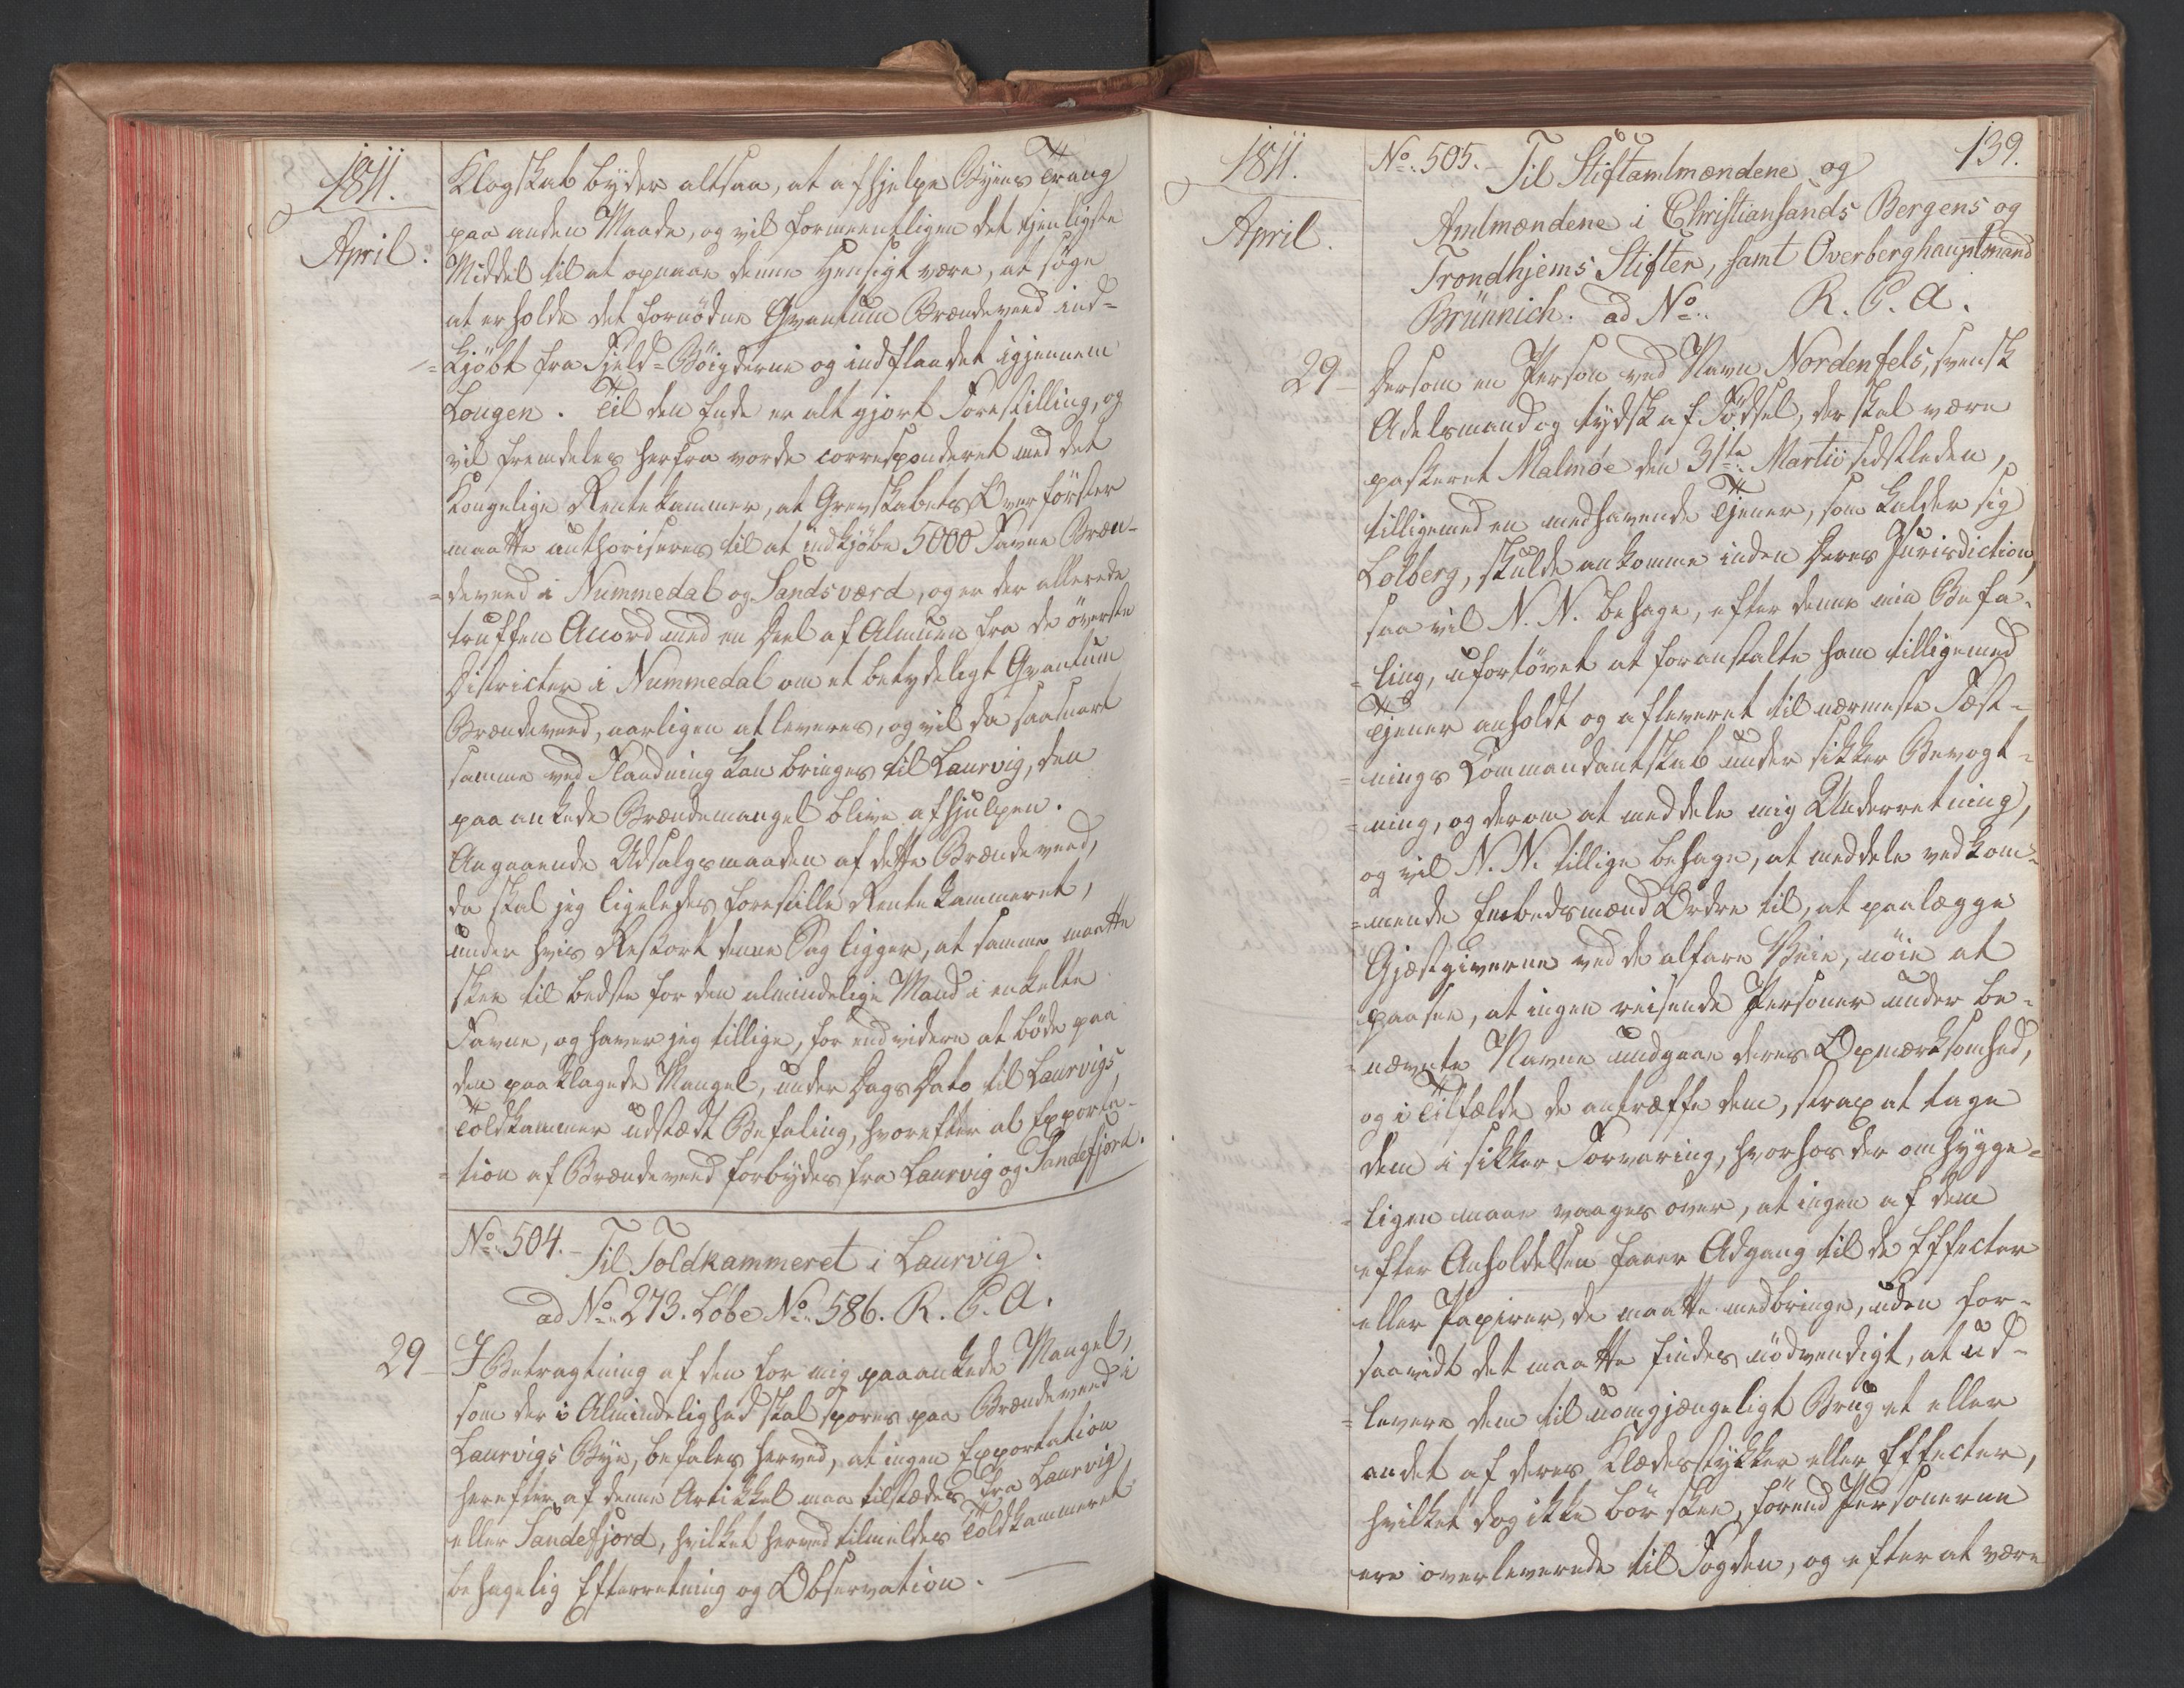 1811.
April.
Klogskab byder altsaa, at afhjelpe Byens Trang
paa anden Maade, og vil formeentligen det tjenligste
Middel til at opnaae denne Hensigt være, at søge
at erholde det fornødne Qvantum Brændeveed ind-
=kjöbt fra Fjeld=Böigderne og indflaadet igjennem
Lougen. Til den Ende er alt gjort Forestilling, og
vil fremdeles herfra vorde corresponderet med det
Kongelige Rentekammer, at Grevskabets Overförster
maatte authoriseres til at indkjöbe 5000 Favne Bræn-
=deveed i Nummedal og Sandsværd, og er der allerede
truffen Accord med en Deel af Almuen fra de överste
Districter i Nummedal om et betydeligt Qvantum
Brændeveed, aarligen at leveres, og vil da saasnart
samme ved Flaadning kan bringes til Laurvig, den
paaankede Brændemangel blive afhjulpen.
Angaaende Udsalgsmaaden af dette Brændeveed,
da skal jeg ligeledes forestille Rentekammeret,
under hvis Ressort denne Sag ligger, at samme maatte
skee til bedste for den almindelige Mand i enkelte
Favne, og haver jeg tillige, for end videre at böde paa
den paaklagede Mangel, under Dags Dato til Laurvigs
Toldkammer udstædt Befaling, hvorefter al Exporta-
=tion af Brændeveed forbydes fra Laurvig og Sandefjord.
No. 504. Til Toldkammeret i Laurvig.
ad No. 273. Löbe No. 586. R. C. A.
29 I Betragtning af den for mig paaankede Mangel,
som der i Almindelighed skal spores paa Brændeveed i
Laurvigs Bye, befales herved, at ingen Exportation
herefter af denne Artikkel maa tilstædes fra Laurvig
eller Sandefjord, hvilket herved tilmeldes Toldkammeret
behagelig Efterretning og Observation.
1811.
April.
139.
No. 505. Til Stiftamtmændene og
Amtmændene i Christiansands Bergens og
Trondhjems Stifter, samt Overberghauptmand
Brünnich. ad No. R. C. A.
29 Dersom en Person ved Navn Nordenfels, svensk
Adelsmand og tydsk af Födsel, der skal være
passeret Malmöe den 31te Martii sidstleden,
tilligemed en medhavende Tjener, som kalder sig
Lolberg, skulde ankomme inden Deres Jurisdiction,
saa vil N. N. behage, efter denne min Befa-
=ling, ufortövet at foranstalte ham tilligemed
Tjener anholdt og afleveret til nærmeste Fæst-
=nings Commandantskab under sikker Bevogt-
=ning, og derom at meddele mig Underretning,
og vil N. N. tillige behage, at meddele vedkom-
=mende Embedsmænd Ordre til, at paalægge
Gjæstgiverne ved de alfare Veie, nöie at
paasee, at ingen reisende Personer under be-
=nævnte Navne undgaae deres Opmærksomhed,
og i Tilfælde de antræffe dem, strax at tage
dem i sikker Forvaring, hvorhos der omhygge-
=ligen maae vaages over, at ingen af dem
efter Anholdelsen faaer Adgang til de Effecter
eller Papirer, de maatte medbringe, uden for-
saavidt det maatte findes nödvendigt, at ud-
=levere dem til uomgjængeligt Brug et eller
andet af deres Klædesstykker eller Effecter,
hvilket dog ikke bör skee, förend Personerne
ere overleverede til Fogden, og efter at være